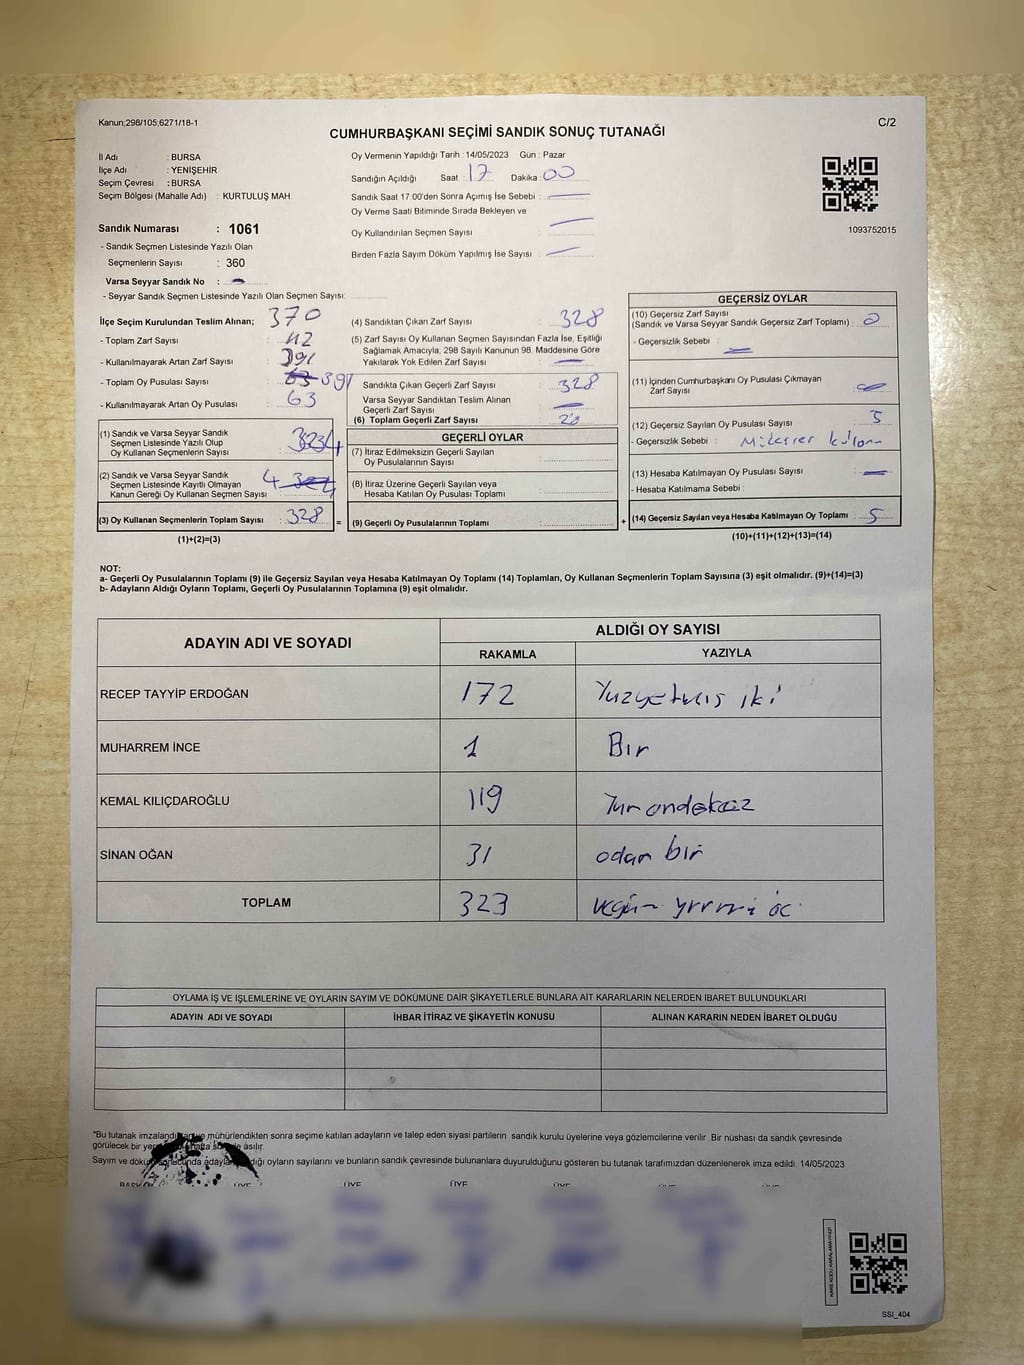 Kanun;298/105,6271/18-1
C/2
CUMHURBAŞKANI SEÇİMİ SANDIK SONUÇ TUTANAĞI
İl Adı : BURSA
İlçe Adı : YENİŞEHİR
Seçim Çevresi : BURSA
Seçim Bölgesi (Mahalle Adı) : KURTULUŞ MAH.
Oy Vermenin Yapıldığı Tarih : 14/05/2023 Gün : Pazar
Sandığın Açıldığı Saat : 17 Dakika : 00
Sandık Saat 17.00'den Sonra Açılmış İse Sebebi :
Oy Verme Saati Bitiminde Sırada Bekleyen ve
Oy Kullandırılan Seçmen Sayısı :
Birden Fazla Sayım Döküm Yapılmış İse Sayısı :
1093752015
Sandık Numarası : 1061
- Sandık Seçmen Listesinde Yazılı Olan
Seçmenlerin Sayısı : 360
Varsa Seyyar Sandık No :
- Seyyar Sandık Seçmen Listesinde Yazılı Olan Seçmen Sayısı:
İlçe Seçim Kurulundan Teslim Alınan; 370
- Toplam Zarf Sayısı : 42
- Kullanılmayarak Artan Zarf Sayısı : 391
- Toplam Oy Pusulası Sayısı : 63 391
- Kullanılmayarak Artan Oy Pusulası : 63
(1) Sandık ve Varsa Seyyar Sandık
Seçmen Listesinde Yazılı Olup
Oy Kullanan Seçmenlerin Sayısı : 324
(2) Sandık ve Varsa Seyyar Sandık
Seçmen Listesinde Kayıtlı Olmayan
Kanun Gereği Oy Kullanan Seçmen Sayısı : 4 324
(3) Oy Kullanan Seçmenlerin Toplam Sayısı : 328 =
(1)+(2)=(3)
(4) Sandıktan Çıkan Zarf Sayısı : 328
(5) Zarf Sayısı Oy Kullanan Seçmen Sayısından Fazla İse, Eşitliği
Sağlamak Amacıyla, 298 Sayılı Kanunun 98. Maddesine Göre
Yakılarak Yok Edilen Zarf Sayısı :
Sandıkta Çıkan Geçerli Zarf Sayısı : 328
Varsa Seyyar Sandıktan Teslim Alınan
Geçerli Zarf Sayısı :
(6) Toplam Geçerli Zarf Sayısı :
GEÇERLİ OYLAR
(7) İtiraz Edilmeksizin Geçerli Sayılan
Oy Pusulalarının Sayısı :
(8) İtiraz Üzerine Geçerli Sayılan veya
Hesaba Katılan Oy Pusulası Toplamı :
(9) Geçerli Oy Pusulalarının Toplamı : +
GEÇERSİZ OYLAR
(10) Geçersiz Zarf Sayısı
(Sandık ve Varsa Seyyar Sandık Geçersiz Zarf Toplamı) : 0
- Geçersizlik Sebebi :
(11) İçinden Cumhurbaşkanı Oy Pusulası Çıkmayan
Zarf Sayısı :
(12) Geçersiz Sayılan Oy Pusulası Sayısı : 5
- Geçersizlik Sebebi :
(13) Hesaba Katılmayan Oy Pusulası Sayısı :
- Hesaba Katılmama Sebebi :
(14) Geçersiz Sayılan veya Hesaba Katılmayan Oy Toplamı : 5
(10)+(11)+(12)+(13)=(14)
NOT:
a- Geçerli Oy Pusulalarının Toplamı (9) ile Geçersiz Sayılan veya Hesaba Katılmayan Oy Toplamı (14) Toplamları, Oy Kullanan Seçmenlerin Toplam Sayısına (3) eşit olmalıdır. (9)+(14)=(3)
b- Adayların Aldığı Oyların Toplamı, Geçerli Oy Pusulalarının Toplamına (9) eşit olmalıdır.
ADAYIN ADI VE SOYADI
ALDIĞI OY SAYISI
RAKAMLA YAZIYLA
RECEP TAYYİP ERDOĞAN 172 Yüzyetmiş iki
MUHARREM İNCE 1 Bir
KEMAL KILIÇDAROĞLU 119
SİNAN OĞAN 31 bir
TOPLAM 323
OYLAMA İŞ VE İŞLEMLERİNE VE OYLARIN SAYIM VE DÖKÜMÜNE DAİR ŞİKAYETLERLE BUNLARA AİT KARARLARIN NELERDEN İBARET BULUNDUKLARI
ADAYIN ADI VE SOYADI İHBAR İTİRAZ VE ŞİKAYETİN KONUSU ALINAN KARARIN NEDEN İBARET OLDUĞU
*Bu tutanak imzalandıktan ve mühürlendikten sonra seçime katılan adayların ve talep eden siyasi partilerin sandık kurulu üyelerine veya gözlemcilerine verilir. Bir nüshası da sandık çevresinde
görülecek bir yere asılır.
Sayım ve döküm sonucunda adayların aldığı oyların sayılarını ve bunların sandık çevresinde bulunanlara duyurulduğunu gösteren bu tutanak tarafımızdan düzenlenerek imza edildi. 14/05/2023
ÜYE ÜYE ÜYE ÜYE ÜYE ÜYE
SSI_404